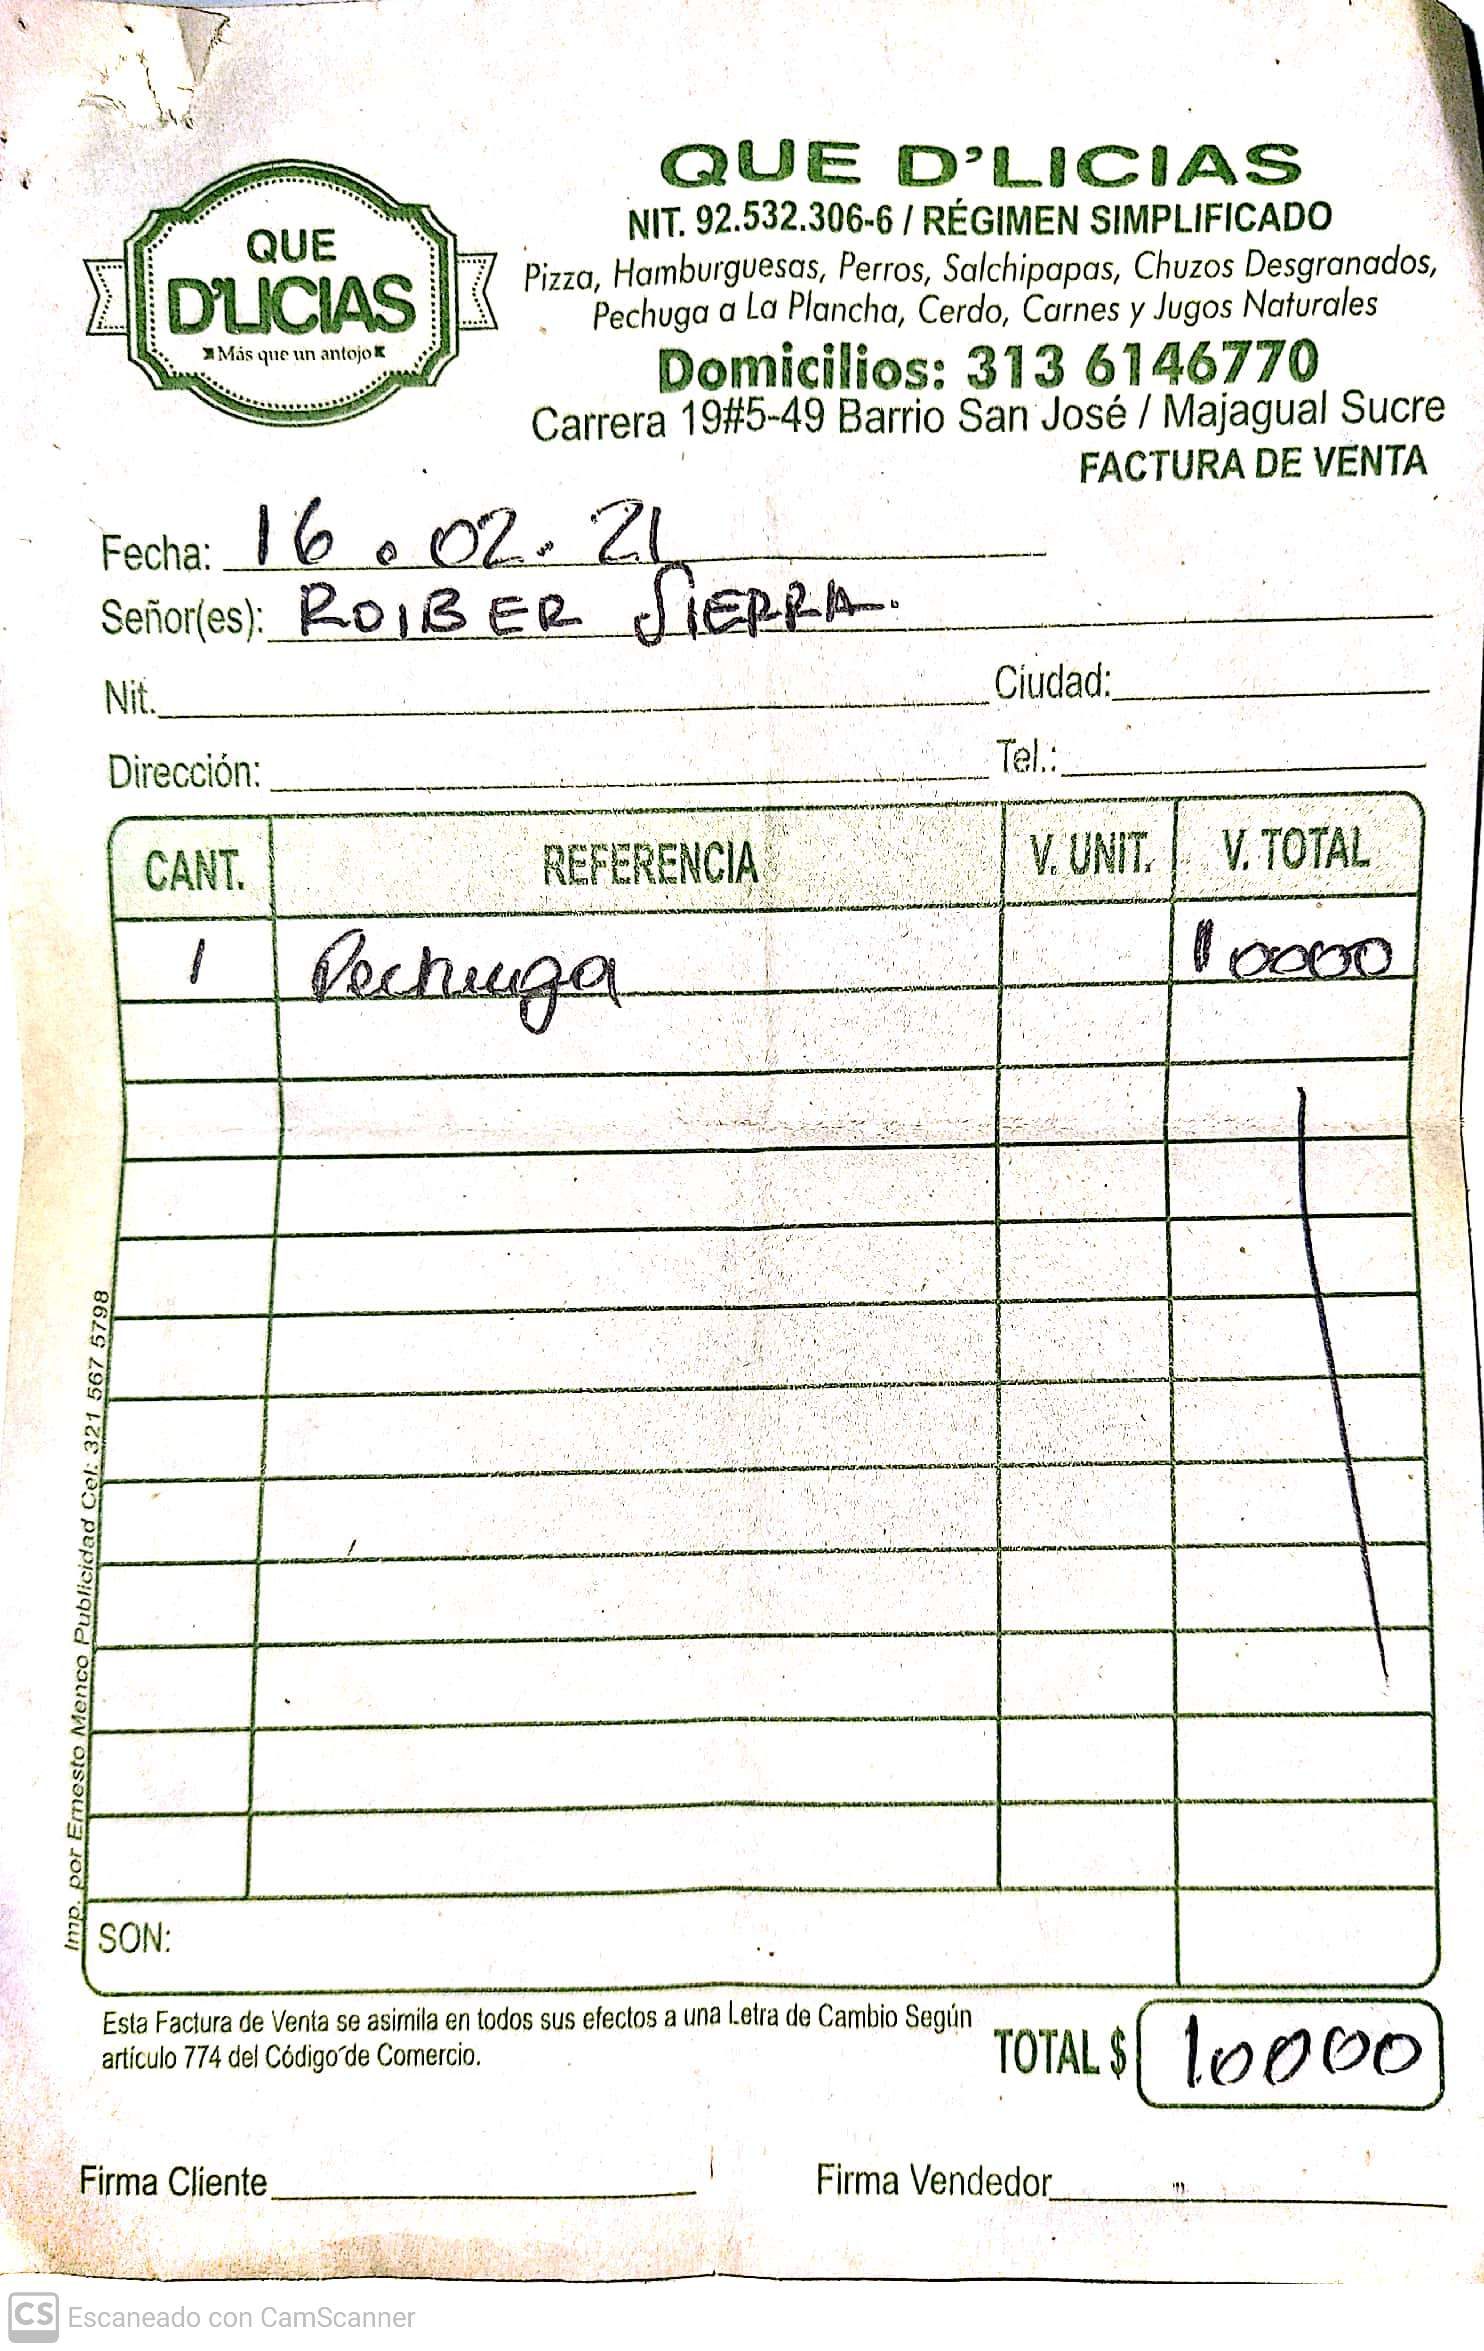 QUE D'LICIAS
NIT. 92.532.306-6 / RÉGIMEN SIMPLIFICADO
Pizza, Hamburguesas, Perros, Salchipapas, Chuzos Desgranados,
Pechuga a La Plancha, Cerdo, Carnes y Jugos Naturales
Domicilios: 313 6146770
Carrera 19#5-49 Barrio San José / Majagual Sucre
FACTURA DE VENTA
QUE
D'LICIAS
Más que un antojo
Fecha: 16.02.21
Señor(es): ROIBER SIERRA.
Nit. Ciudad:
Dirección: Tel.:
CANT. REFERENCIA V. UNIT. V. TOTAL
1 Pechuga 10000
SON:
Esta Factura de Venta se asimila en todos sus efectos a una Letra de Cambio Según
artículo 774 del Código de Comercio.
TOTAL $ 10000
Firma Cliente Firma Vendedor
Imp. por Ernesto Menco Publicidad Cel: 321 567 5798
CS Escaneado con CamScanner